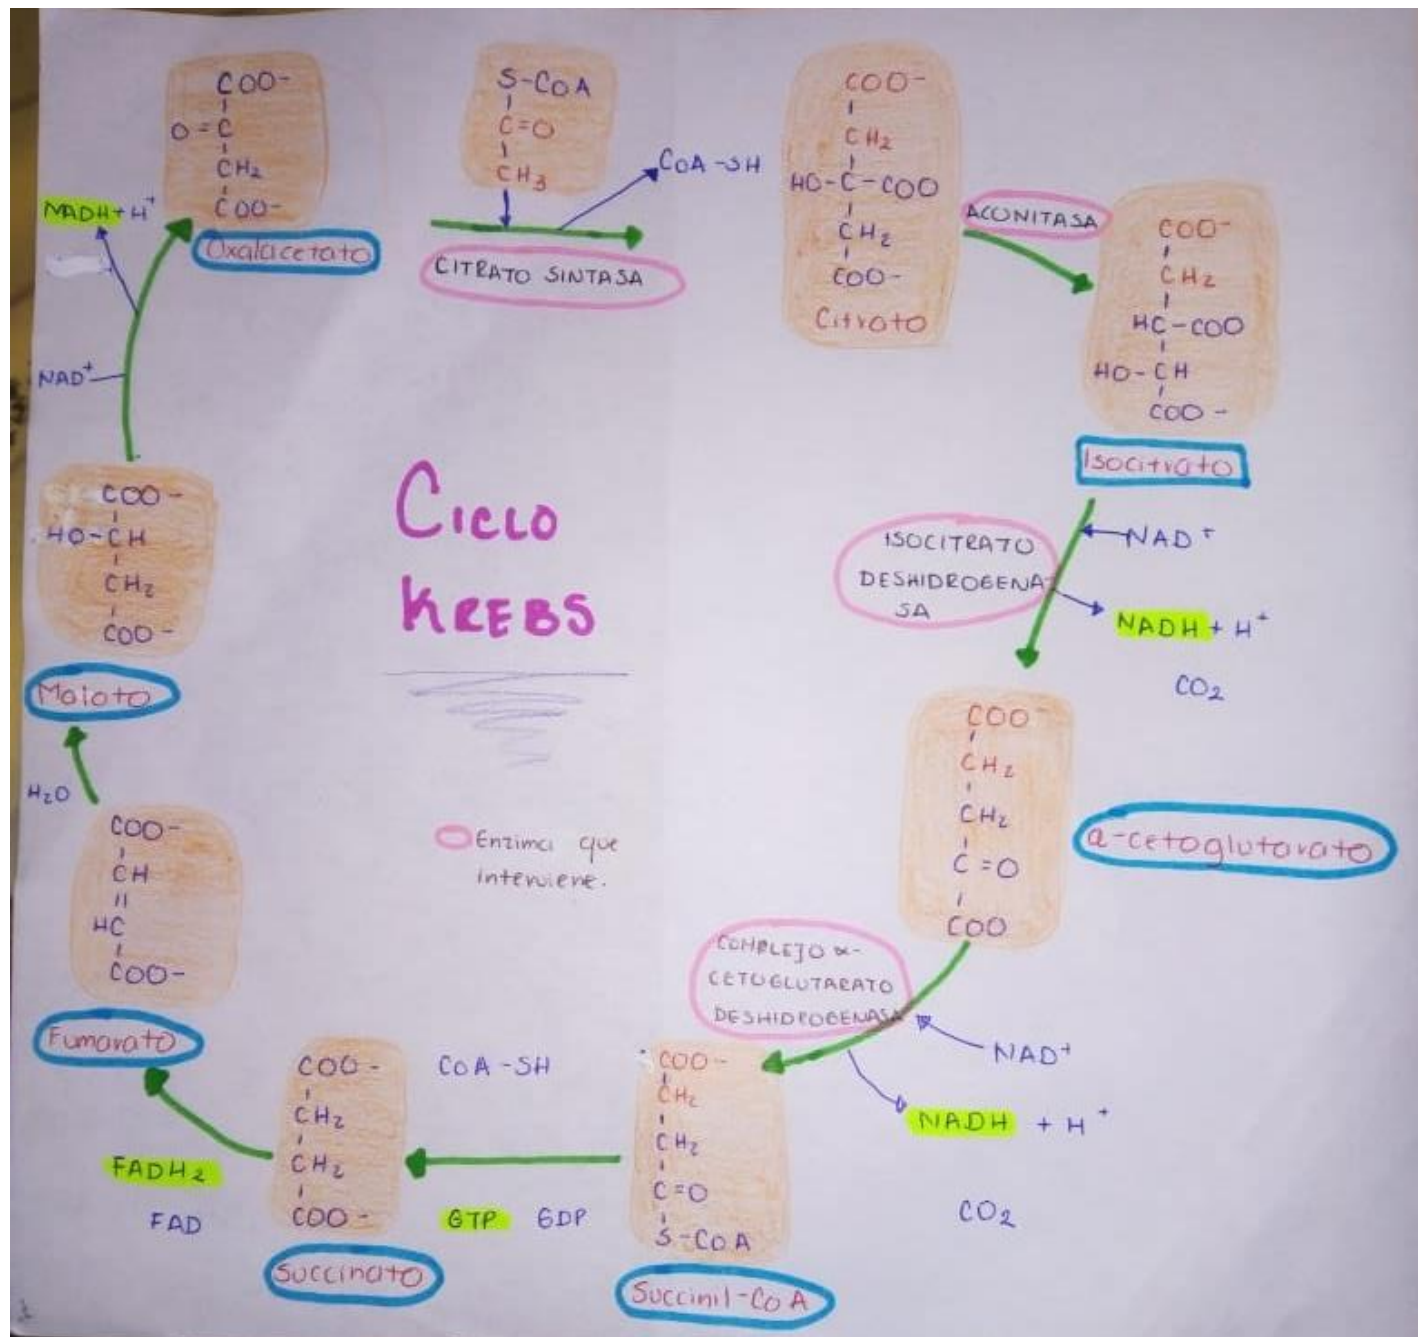 COO-
O=C
CH₂
COO-
Oxalacetato
S-CoA
C=O
CH₃
CoA-SH
CITRATO SINTASA
COO-
CH₂
HO-C-COO
CH₂
COO-
Citrato
ACONITASA
COO-
CH₂
HC-COO
HO-CH
COO-
Isocitrato
NAD⁺
ISOCITRATO
DESHIDROGENA
SA
NADH + H⁺
CO₂
COO-
CH₂
CH₂
C=O
COO
α-cetoglutarato
COMPLEJO α-
CETOGLUTARATO
DESHIDROGENASA
NAD⁺
NADH + H⁺
CO₂
COO-
CH₂
CH₂
C=O
S-CoA
Succinil-CoA
CoA-SH
GTP GDP
COO-
CH₂
CH₂
COO-
Succinato
FADH₂
FAD
COO-
CH
HC
COO-
Fumarato
H₂O
COO-
HO-CH
CH₂
COO-
Malato
NAD⁺
NADH + H⁺
CICLO
KREBS
Enzima que
interviene.